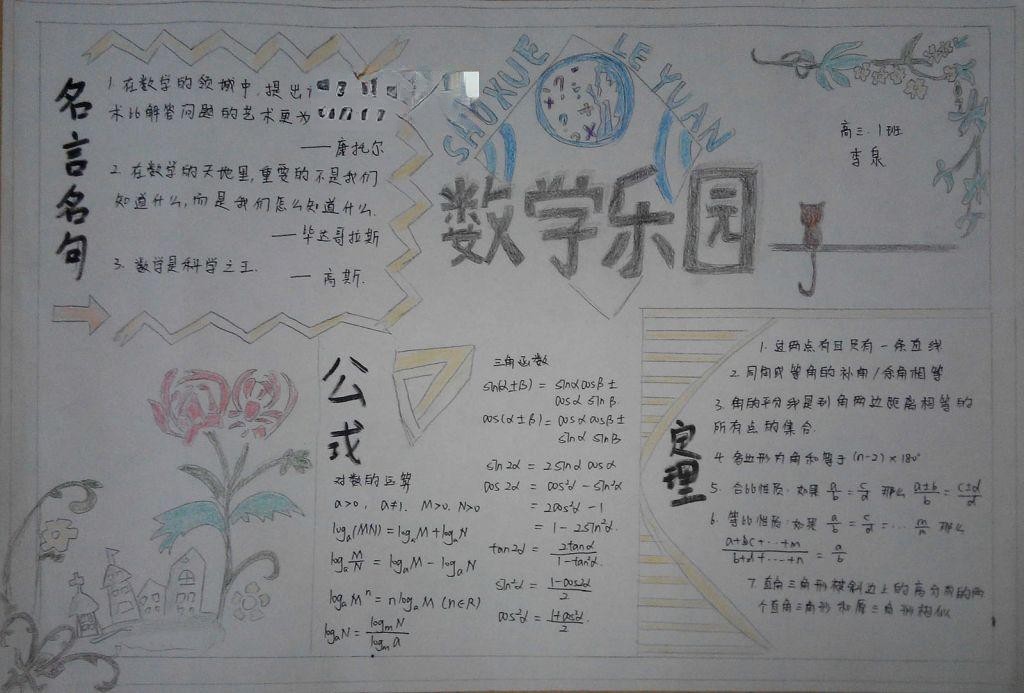 名言名句
1. 在数学的领域中, 提出
术比解答问题的艺术更为
——康托尔
2. 在数学的天地里, 重要的不是我们
知道什么, 而是我们怎么知道什么.
——毕达哥拉斯
3. 数学是科学之王.
— 高斯.
SHUXUE LE YUAN
数学乐园
高三.1班
李泉
公式
对数的运算
a>0, a≠1, M>0, N>0
logₐ(MN) = logₐM + logₐN
logₐ M/N = logₐM − logₐN
logₐMⁿ = n logₐM (n∈R)
logₐN = logₘN / logₘa
三角函数
sin(α±β) = sinα cosβ ±
cosα sinβ
cos(α±β) = cosα cosβ ±
sinα sinβ
sin2α = 2sinα cosα
cos2α = cos²α − sin²α
= 2cos²α − 1
= 1 − 2sin²α.
tan2α = 2tanα / 1−tan²α.
sin²α = 1−cos2α / 2
cos²α = 1+cos2α / 2.
定理
1. 过两点有且只有一条直线
2. 同角或等角的补角/余角相等
3. 角的平分线是到角两边距离相等的
所有点的集合.
4. 多边形内角和等于(n-2)×180°
5. 合比性质: 如果 a/b = c/d 那么 a±b/b = c±d/d
6. 等比性质: 如果 a/b = c/d = ... m/n 那么
a+bc+...+m / b+d+...+n = a/b
7. 直角三角形被斜边上的高分成的两
个直角三角形和原三角形相似